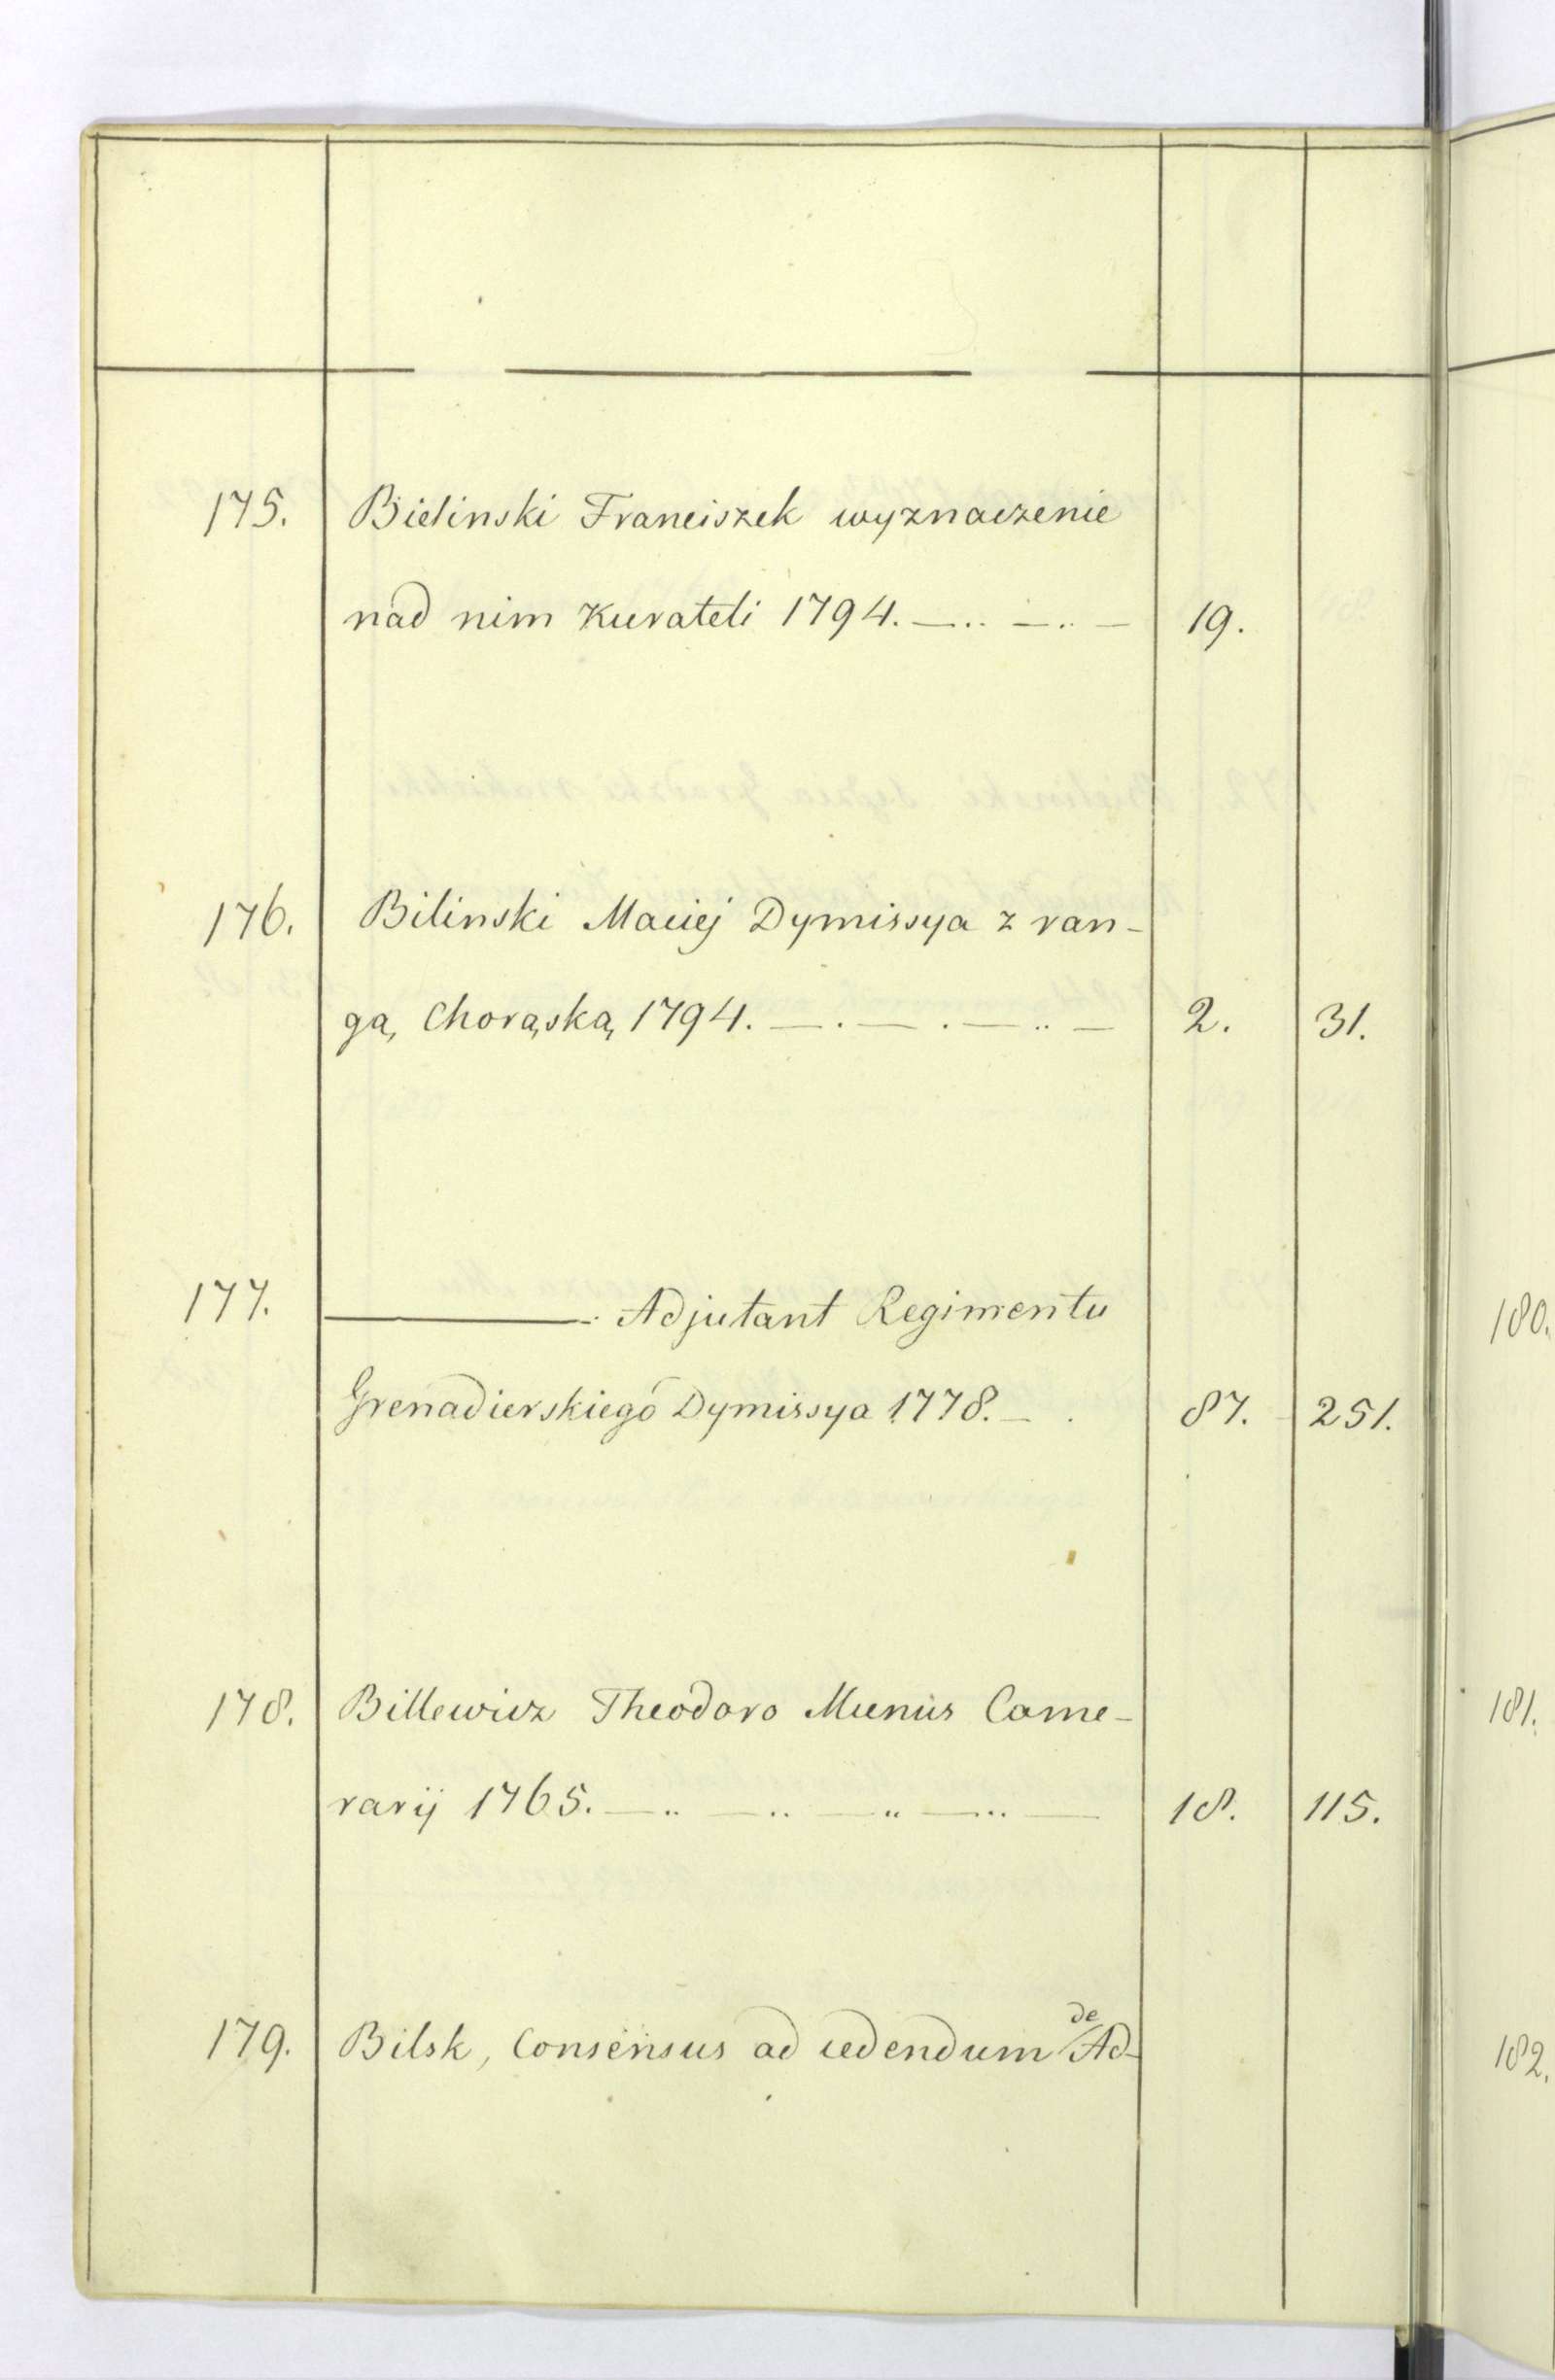 175. Bielinski Franciszek wyznaczenie
nad nim Kurateli 1794. —.. —.. — 19.
176. Bilinski Maciej Dymissya z ran-
gą Chorąską 1794. —. — . — .. — 2. 31.
177. ——— . Adjutant Regimentu
Grenadierskiego Dymissya 1778. — . 87. 251.
178. Billewicz Theodoro Munus Came-
rarij 1765. — .. — .. — .. — .. — 18. 115.
179. Bilsk, Consensus ad cedendum de Ad-
180.
181.
182.